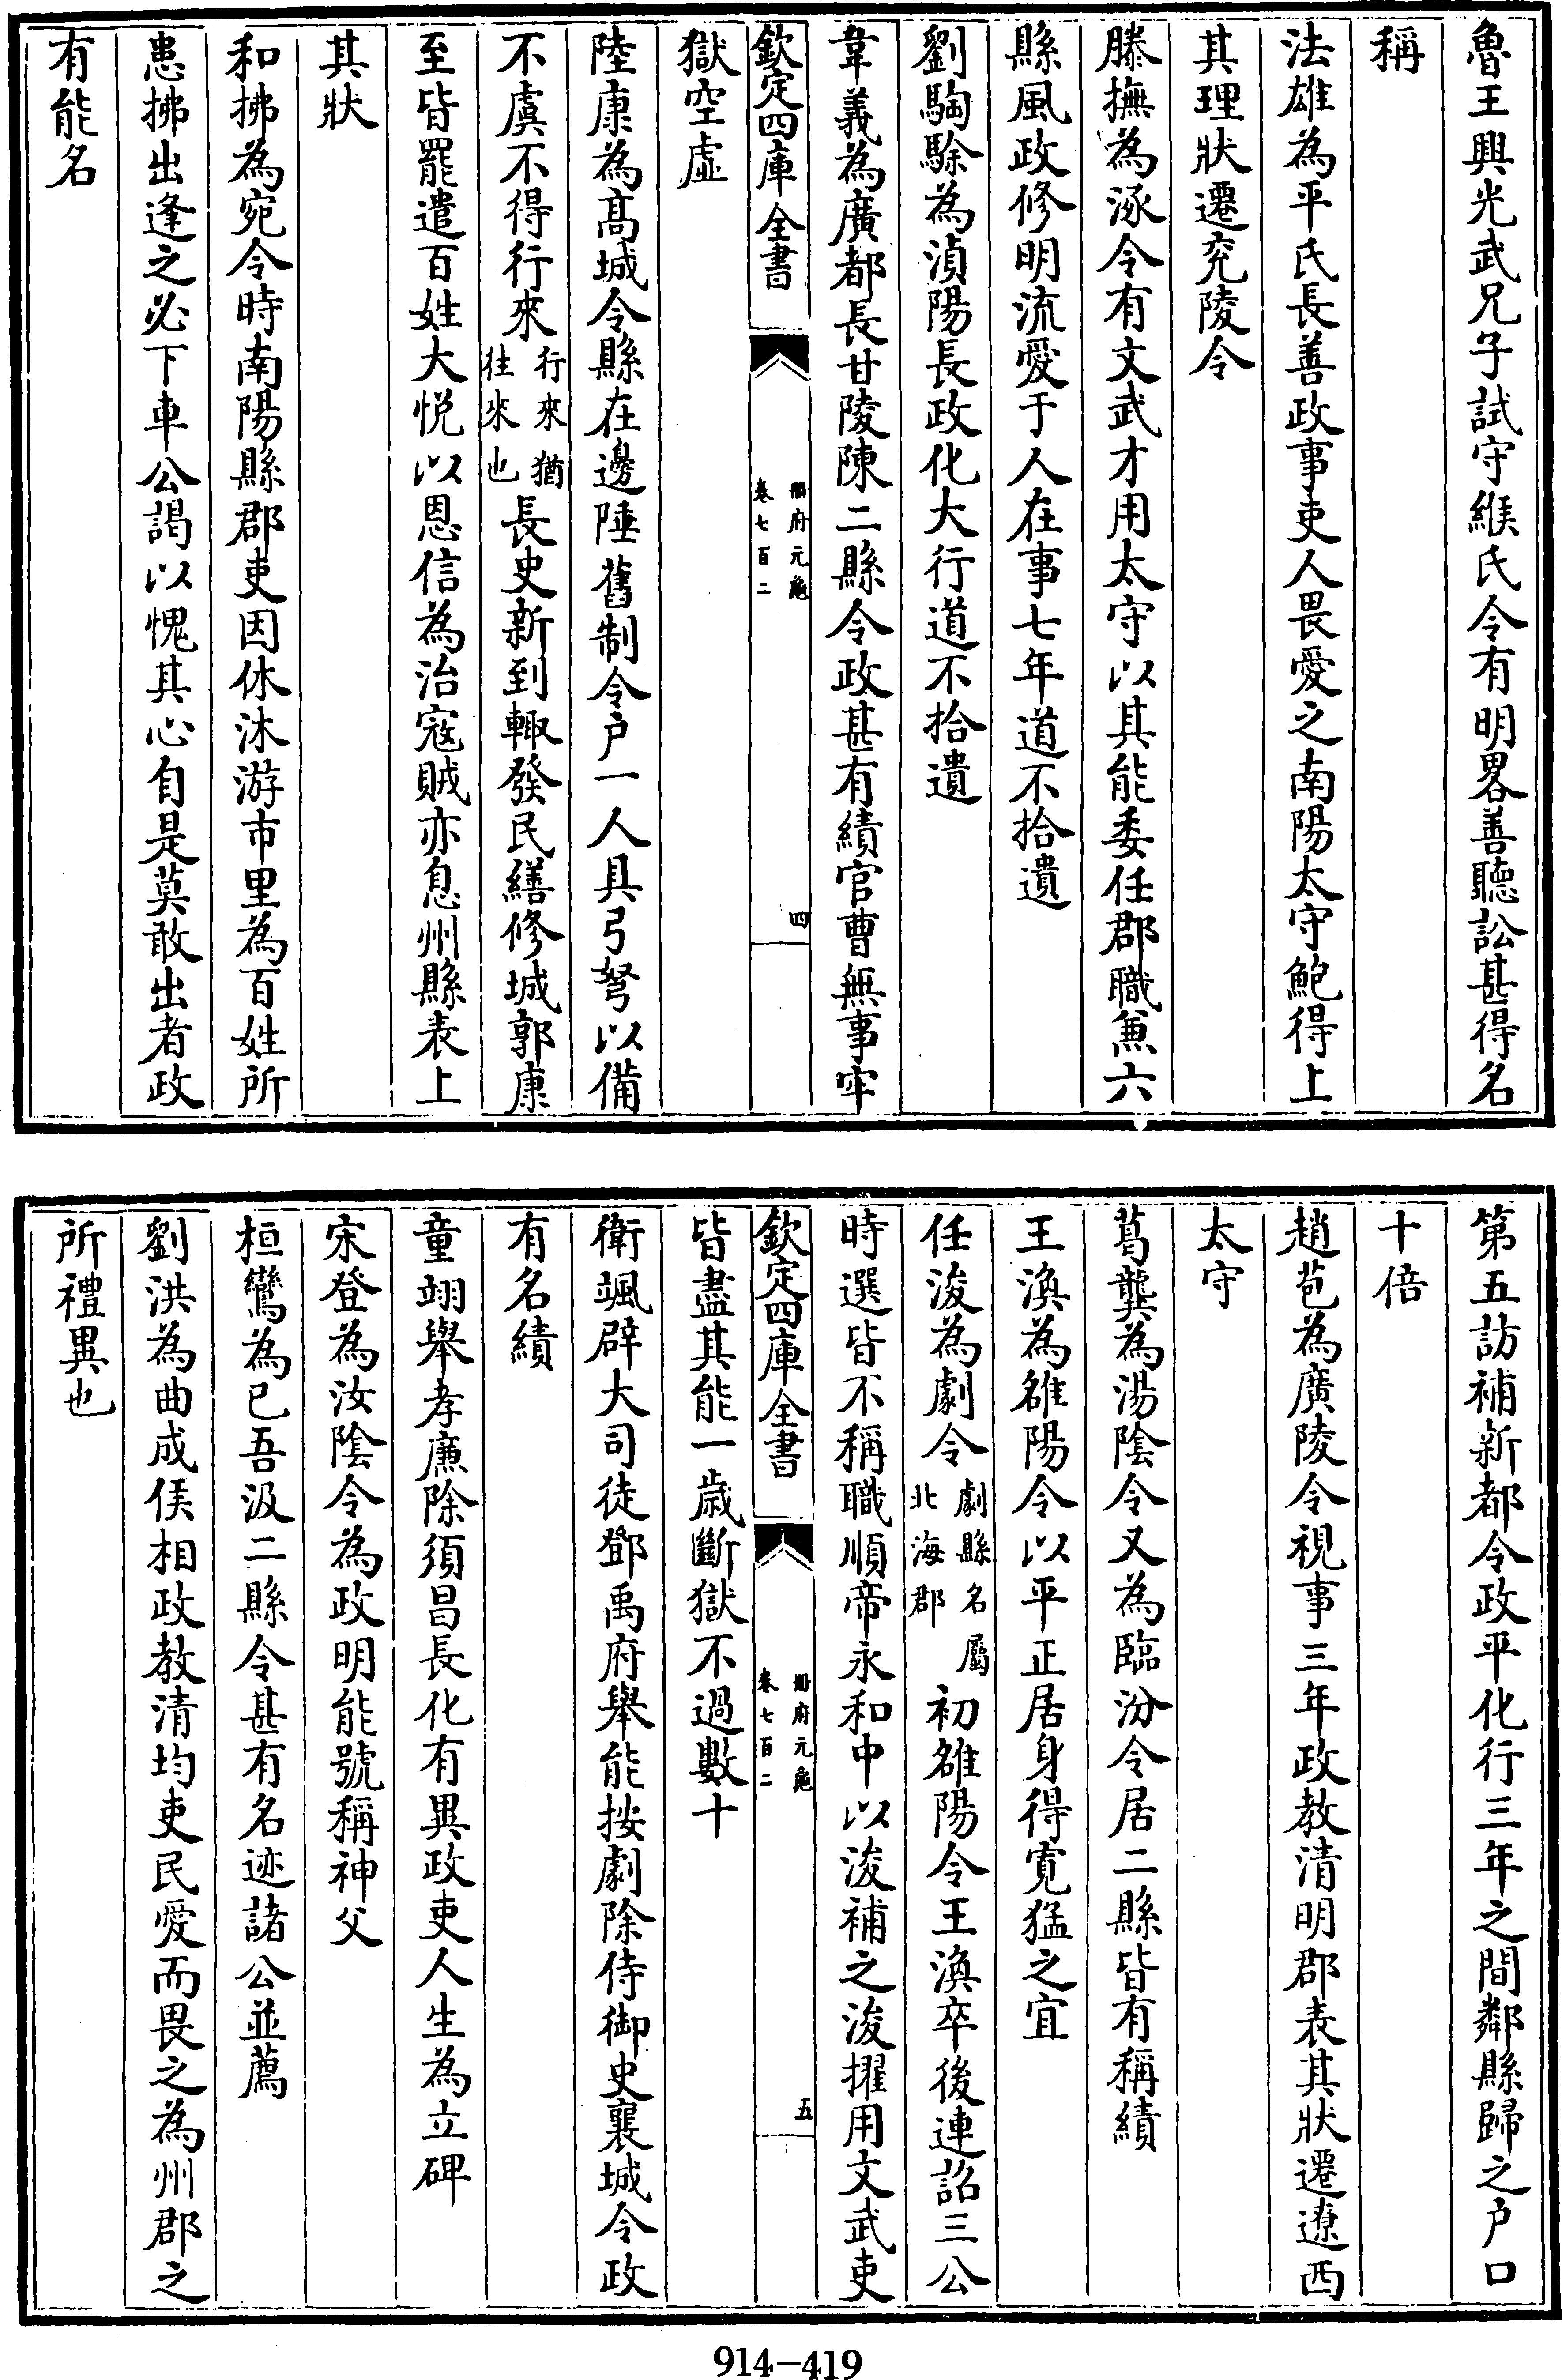 魯王興光武兄子試守緱氏令有明畧善聽訟甚得名
稱
法雄為平氏長善政事吏人畏愛之南陽太守鮑得上
其理狀遷宛陵令
滕撫為涿令有文武才用太守以其能委任郡職兼六
縣風政修明流愛于人在事七年道不拾遺
劉騊駼為湞陽長政化大行道不拾遺
韋義為廣都長甘陵陳二縣令政甚有績官曹無事牢
欽定四庫全書
冊府元龜
卷七百二
四
獄空虛
陸康為髙城令縣在邊陲舊制令户一人具弓弩以備
不虞不得行來行來猶往來也長史新到輙發民繕修城郭康
至皆罷遣百姓大悦以恩信為治寇賊亦息州縣表上
其狀
和拂為宛令時南陽縣郡吏因休沐游市里為百姓所
患拂出逢之必下車公謁以愧其心自是莫敢出者政
有能名
第五訪補新都令政平化行三年之間鄰縣歸之户口
十倍
趙苞為廣陵令視事三年政教清明郡表其狀遷遼西
太守
葛龔為湯陰令又為臨汾令居二縣皆有稱績
王渙為雒陽令以平正居身得寛猛之宜
任浚為劇令劇縣名屬北海郡初雒陽令王渙卒後連詔三公
時選皆不稱職順帝永和中以浚補之浚擢用文武吏
欽定四庫全書
冊府元龜
卷七百二
五
皆盡其能一歳斷獄不過數十
衛颯辟大司徒鄧禹府舉能按劇除侍御史襄城令政
有名績
童翊舉孝廉除須昌長化有異政吏人生為立碑
宋登為汝隂令為政明能號稱神父
桓鸞為已吾汲二縣令甚有名迹諸公並薦
劉洪為曲成侯相政教清均吏民愛而畏之為州郡之
所禮異也
914-419